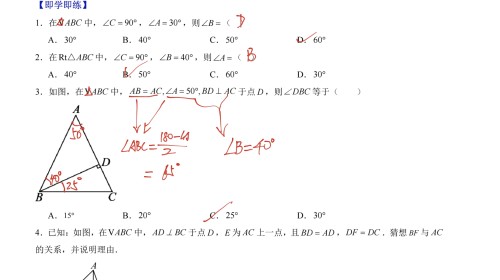 【即学即练】
1．在△ABC 中，∠C = 90°，∠A = 30°，则∠B =（ D ）
A．30° B．40° C．50° D．60°
2．在Rt△ABC 中，∠C = 90°，∠B = 40°，则∠A =（ B ）
A．40° B．50° C．60° D．30°
3．如图，在VABC 中，AB = AC, ∠A = 50°, BD ⊥ AC 于点 D，则∠DBC 等于（ ）
A
50°
∠ABC = 180-50/2
∠B=40°
= 65°
D
40°
25°
B C
A．15° B．20° C．25° D．30°
4．已知：如图，在VABC 中，AD ⊥ BC 于点 D，E 为 AC 上一点，且 BD = AD，DF = DC．猜想 BF 与 AC
的关系，并说明理由．
A